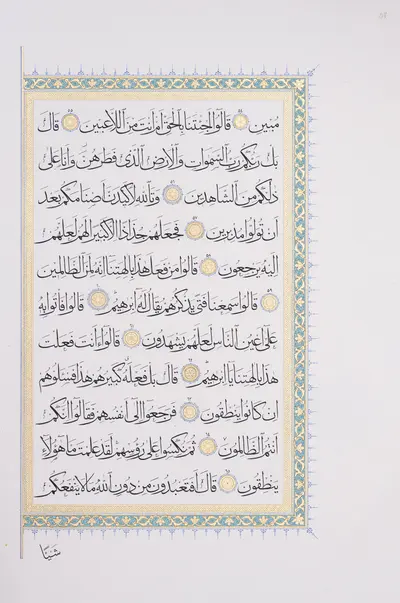 مُبِينٍ ۝ قَالُوا أَجِئْتَنَا بِالْحَقِّ أَمْ أَنْتَ مِنَ اللَّاعِبِينَ ۝ قَالَ
بَلْ رَبُّكُمْ رَبُّ السَّمٰوَاتِ وَالْأَرْضِ الَّذِي فَطَرَهُنَّ وَأَنَا عَلَى
ذٰلِكُمْ مِنَ الشَّاهِدِينَ ۝ وَتَاللَّهِ لَأَكِيدَنَّ أَصْنَامَكُمْ بَعْدَ
أَنْ تُوَلُّوا مُدْبِرِينَ ۝ فَجَعَلَهُمْ جُذَاذًا إِلَّا كَبِيرًا لَهُمْ لَعَلَّهُمْ
إِلَيْهِ يَرْجِعُونَ ۝ قَالُوا مَنْ فَعَلَ هٰذَا بِآلِهَتِنَا إِنَّهُ لَمِنَ الظَّالِمِينَ
۝ قَالُوا سَمِعْنَا فَتًى يَذْكُرُهُمْ يُقَالُ لَهُ إِبْرٰهِيمُ ۝ قَالُوا فَأْتُوا بِهِ
عَلَى أَعْيُنِ النَّاسِ لَعَلَّهُمْ يَشْهَدُونَ ۝ قَالُوا ءَأَنْتَ فَعَلْتَ
هٰذَا بِآلِهَتِنَا يَا إِبْرٰهِيمُ ۝ قَالَ بَلْ فَعَلَهُ كَبِيرُهُمْ هٰذَا فَسْـَٔلُوهُمْ
إِنْ كَانُوا يَنْطِقُونَ ۝ فَرَجَعُوا إِلَى أَنْفُسِهِمْ فَقَالُوا إِنَّكُمْ
أَنْتُمُ الظَّالِمُونَ ۝ ثُمَّ نُكِسُوا عَلَى رُؤُسِهِمْ لَقَدْ عَلِمْتَ مَا هٰؤُلَاءِ
يَنْطِقُونَ ۝ قَالَ أَفَتَعْبُدُونَ مِنْ دُونِ اللَّهِ مَا لَا يَنْفَعُكُمْ
شَيْئًا